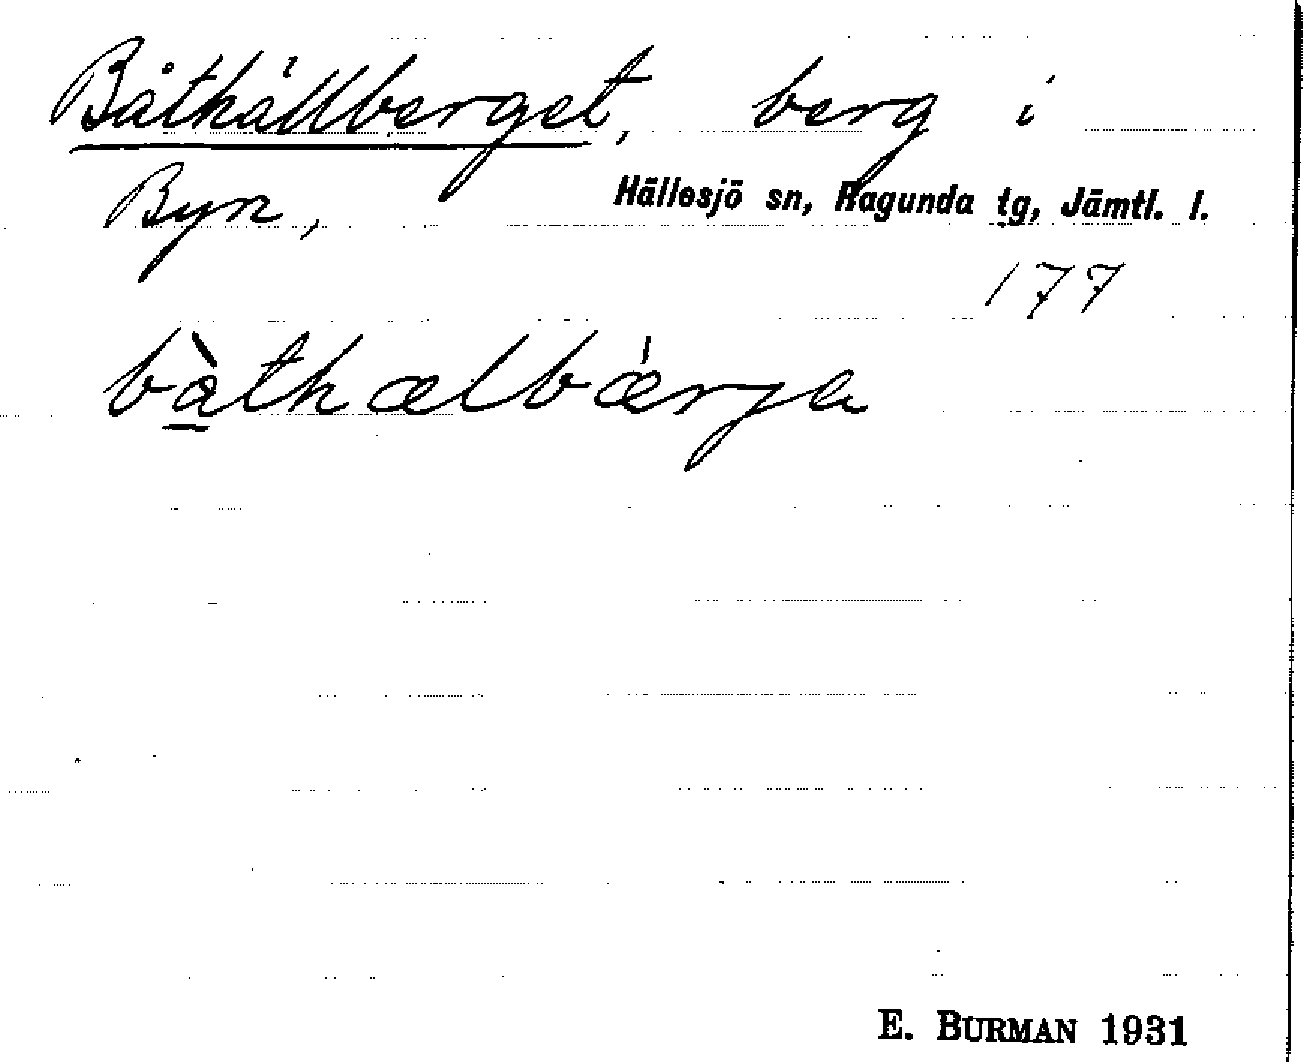 Båthällberget, berg i
Byn, Hällesjö sn, Ragunda tg, Jämtl. l.
177
bàthælbǽrja
E. BURMAN 1931